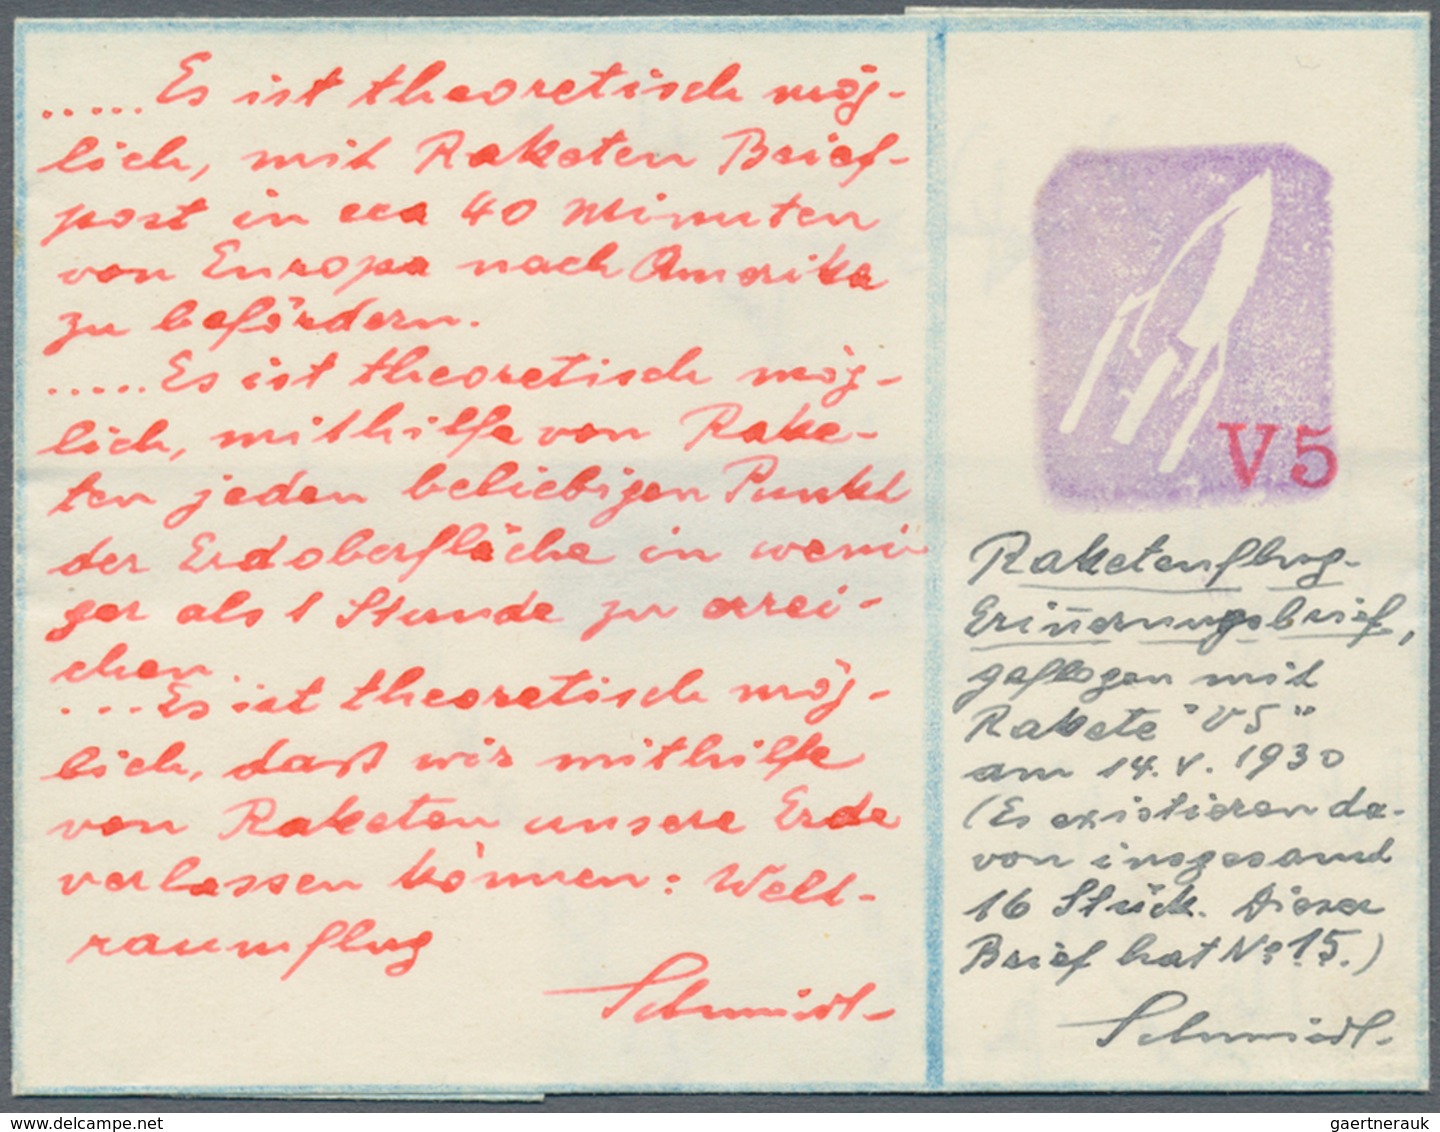 .....Es ist theoretisch mög-
lich, mit Raketen Brief-
post in cca 40 Minuten
von Europa nach Amerika
zu befördern.
.....Es ist theoretisch mög-
lich, mithilfe von Rake-
ten jeden beliebigen Punkt
der Erdoberfläche in weni
ger als 1 Stunde zu errei-
chen.
....Es ist theoretisch mög-
lich, daß wir mithilfe
von Raketen unsere Erde
verlassen können: Welt-
raumflug
Schmiedl-
V5
Raketenflug-
Erinnerungsbrief,
geflogen mit
Rakete "V5"
am 14.V.1930
(Es existieren da-
von insgesamt
16 Stück. Dieser
Brief hat No 15.)
Schmiedl-
gaertnerauk
www.delcampe.net